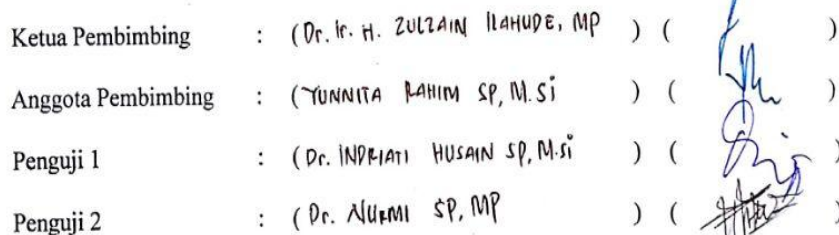 Ketua Pembimbing : (Dr. Ir. H. ZULZAIN ILAHUDE, MP ) ( )
Anggota Pembimbing : (YUNNITA RAHIM SP, M.Si ) ( )
Penguji 1 : (Dr. INDRIATI HUSAIN SP, M.Si ) ( )
Penguji 2 : (Dr. NURMI SP, MP ) ( )